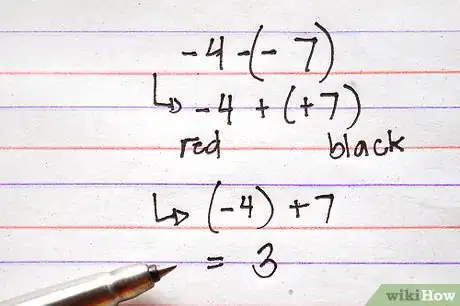 -4-(-7)
↳ -4 + (+7)
red black
↳ (-4) +7
= 3
wikiHow